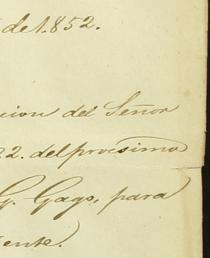 de 1.852.
cion del Señor
2. del procsimo
G. Gago, para
ente.